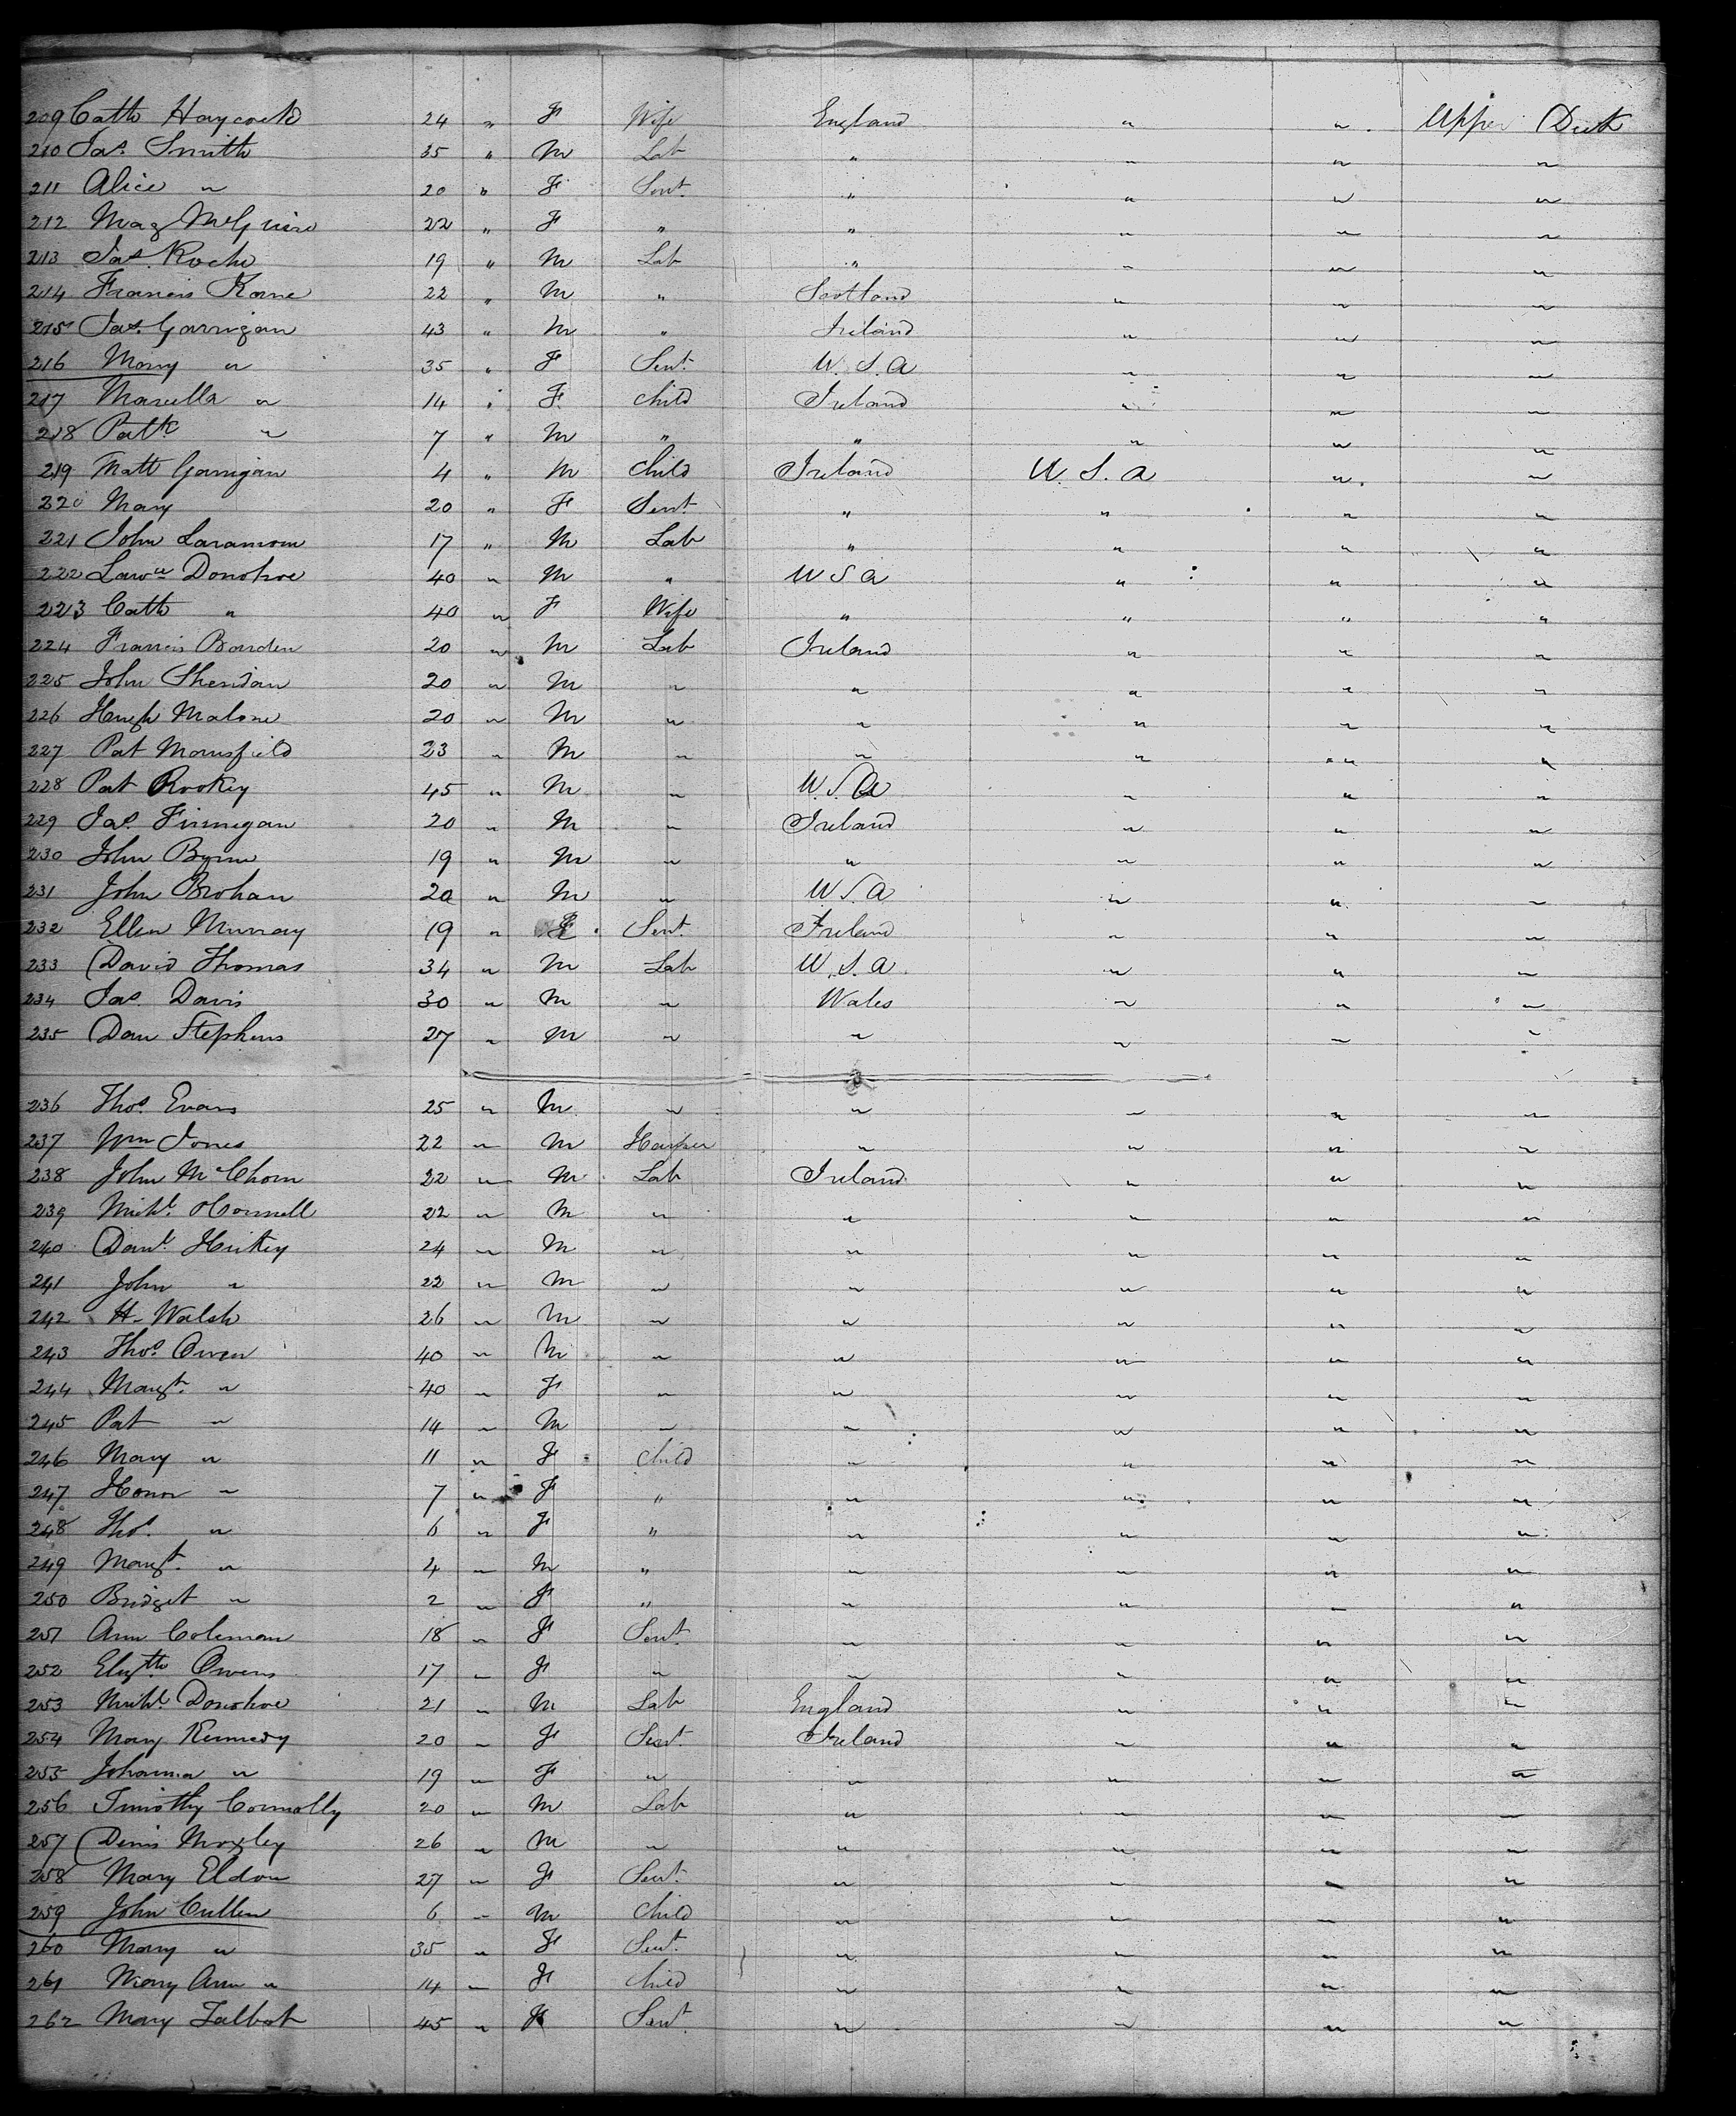 209 Cath Haycock 24 " F Wife England " " Upper Deck
210 Jas. Smith 35 " M Lab " " " "
211 Alice " 20 " F Servt. " " " "
212 Mag McGuire 22 " F " " " " "
213 Jas. Roche 19 " M Lab " " " "
214 Francis Kane 22 " M " Scotland " " "
215 Jas. Garrigan 43 " M " Ireland " " "
216 Mary " 35 " F Servt. U.S.A " " "
217 Marcella " 14 " F Child Ireland " " "
218 Patk " 7 " M " " " " "
219 Matt Garrigan 4 " M Child Ireland U.S.A " "
220 Mary 20 " F Servt " " " "
221 John 17 " M Lab " " " "
222 Lawce Donohoe 40 " M " U S A " " "
223 Cath " 40 " F Wife " " " "
224 Francis Barden 20 " M Lab Ireland " " "
225 John Sheridan 20 " M " " " " "
226 Hugh Malone 20 " M " " " " "
227 Pat Mansfield 23 " M " " " " "
228 Pat Rookey 45 " M " U.S.A " " "
229 Jas. Finnegan 20 " M " Ireland " " "
230 John Byrne 19 " M " " " " "
231 John Brohan 20 " M " U S A " " "
232 Ellen Murray 19 " F Servt. Ireland " " "
233 David Thomas 34 " M Lab U.S.A. " " "
234 Jas. Davis 30 " M " Wales " " "
235 Dan Stephens 27 " M " " " " "
236 Thos. Evans 25 " M " " " " "
237 Wm Jones 22 " M Harper " " " "
238 John 22 " M Lab Ireland " " "
239 Michl. OConnell 22 " M " " " " "
240 Danl. Hickey 24 " M " " " " "
241 John " 22 " M " " " " "
242 H. Walsh 26 " M " " " " "
243 Thos. Owen 40 " M " " " " "
244 Margt. " 40 " F " " " " "
245 Pat " 14 " M " " " " "
246 Mary " 11 " F Child " " " "
247 Honor " 7 " F " " " " "
248 Thos. " 6 " F " " " " "
249 Margt. " 4 " M " " " " "
250 Bridget " 2 " F " " " " "
251 Ann Coleman 18 " F Servt. " " " "
252 Elizth Owens 17 " F " " " " "
253 Michl. Donohoe 21 " M Lab England " " "
254 Mary Kennedy 20 " F Servt. Ireland " " "
255 Johanna " 19 " F " " " " "
256 Timothy Connolly 20 " M Lab " " " "
257 Denis Moxley 26 " M " " " " "
258 Mary Eldon 27 " F Servt. " " " "
259 John Cullen 6 " M Child " " " "
260 Mary " 35 " F Servt. " " " "
261 Mary Ann " 14 " F Child " " " "
262 Mary Talbot 45 " F Servt. " " " "